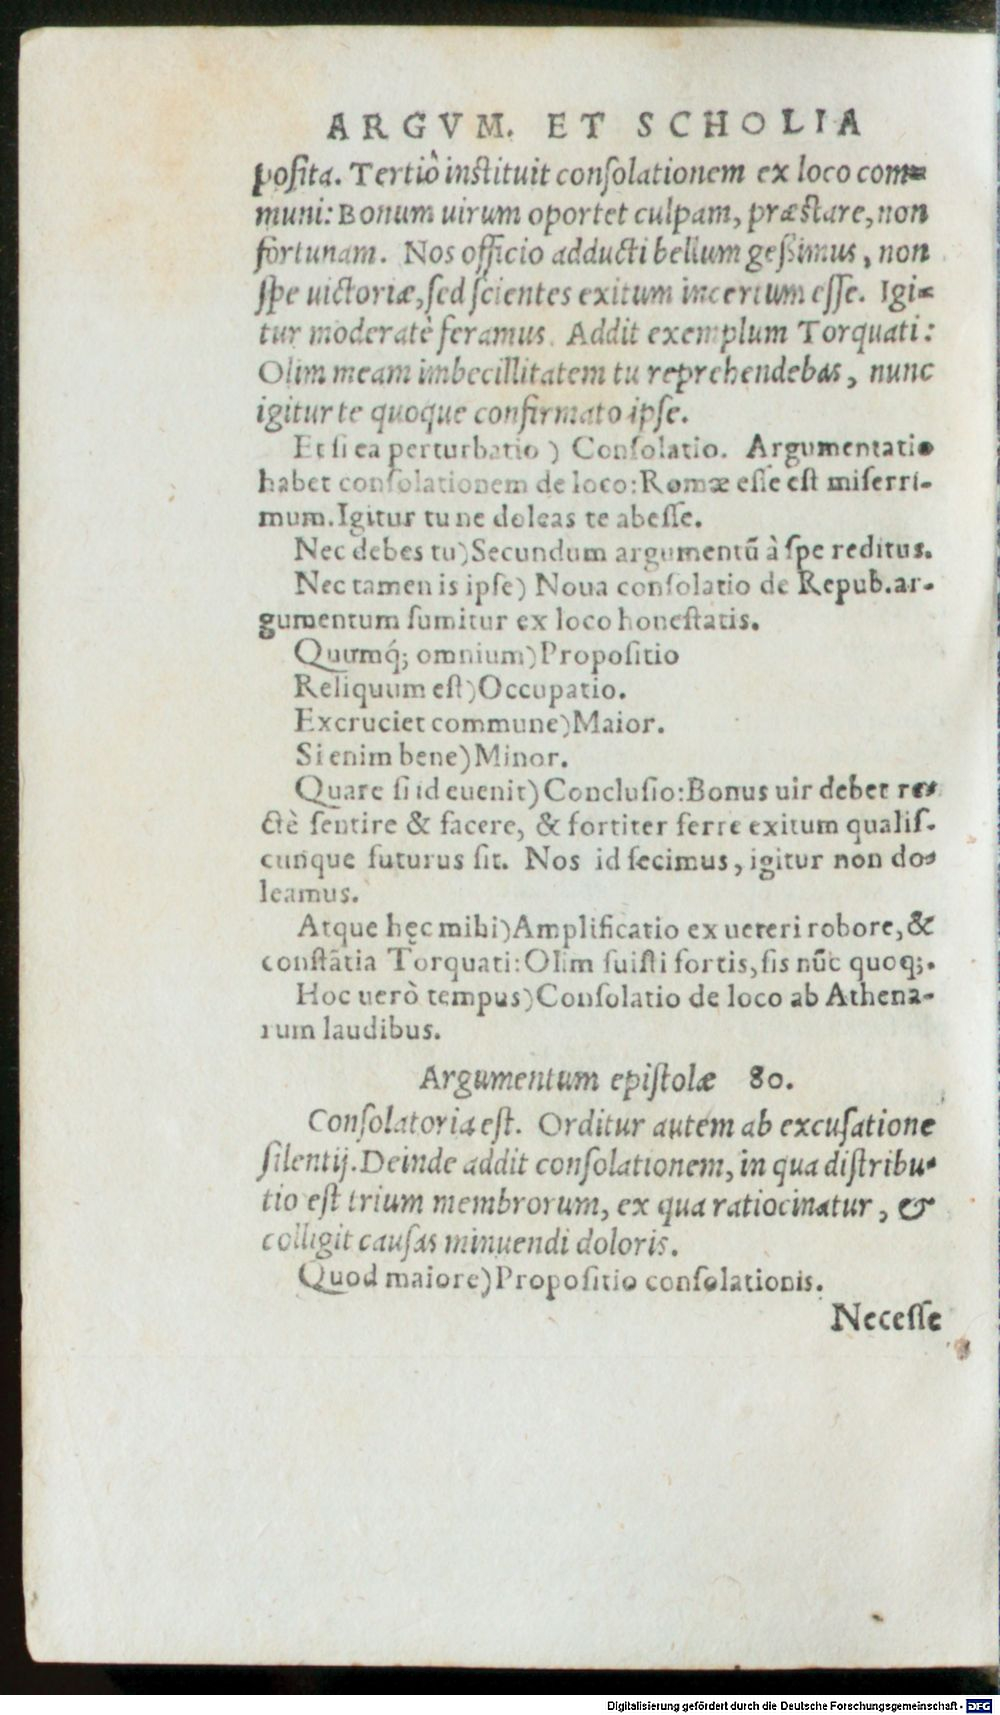 ARGVM. ET SCHOLIA
posita. Tertiò instituit consolationem ex loco com=
muni: Bonum uirum oportet culpam, præstare, non
fortunam. Nos officio adducti bellum gessimus, non
spe uictoriæ, sed scientes exitum incertum esse. Igi=
tur moderatè feramus. Addit exemplum Torquati:
Olim meam imbecillitatem tu reprehendebas, nunc
igitur te quoque confirmato ipse.
Et si ea perturbatio ) Consolatio. Argumentatio
habet consolationem de loco: Romæ esse est miserri-
mum. Igitur tu ne doleas te abesse.
Nec debes tu) Secundum argumentũ à spe reditus.
Nec tamen is ipse) Noua consolatio de Repub. ar-
gumentum sumitur ex loco honestatis.
Quumq́; omnium) Propositio
Reliquum est) Occupatio.
Excruciet commune) Maior.
Si enim bene) Minor.
Quare si id euenit) Conclusio: Bonus uir debet re-
ctè sentire & facere, & fortiter ferre exitum qualis-
cunque futurus sit. Nos id fecimus, igitur non do-
leamus.
Atque hęc mihi) Amplificatio ex ueteri robore, &
constãtia Torquati: Olim fuisti fortis, sis nũc quoq;.
Hoc uerò tempus) Consolatio de loco ab Athena-
rum laudibus.
Argumentum epistolæ 80.
Consolatoria est. Orditur autem ab excusatione
silentij. Deinde addit consolationem, in qua distribu-
tio est trium membrorum, ex qua ratiocinatur, &
colligit causas minuendi doloris.
Quod maiore) Propositio consolationis.
Necesse
Digitalisierung gefördert durch die Deutsche Forschungsgemeinschaft - DFG